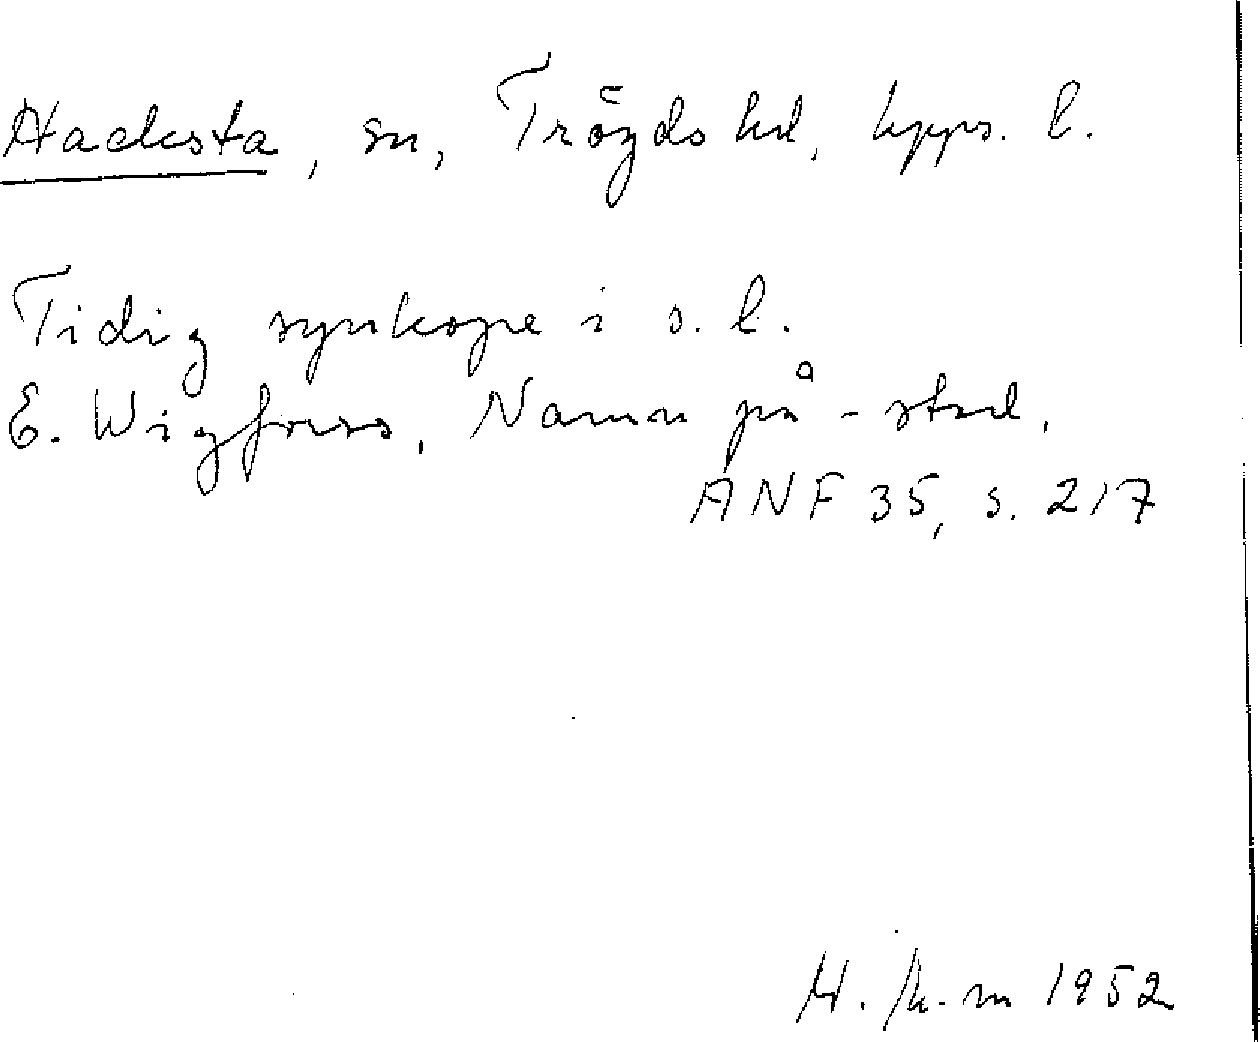 Hacksta, sn, Trögds hd, Upps. l.
Tidig synkope i s. l.
E. Wigforss, Namn på -stad,
ANF 35, s. 217
1952